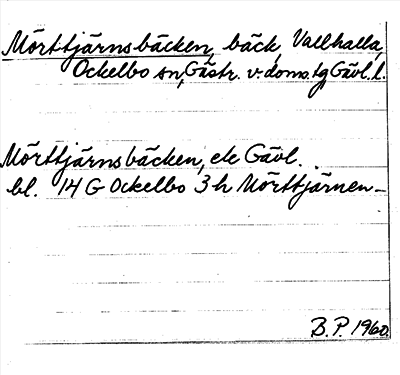 Mörttjärnsbäcken, bäck, Vallhalla,
Ockelbo sn, Gästr. v. doms. tg Gävl. l.
Mörttjärnsbäcken, ek Gävl.
bl. 14 G Ockelbo 3 h Mörttjärnen –
B.P. 1960.